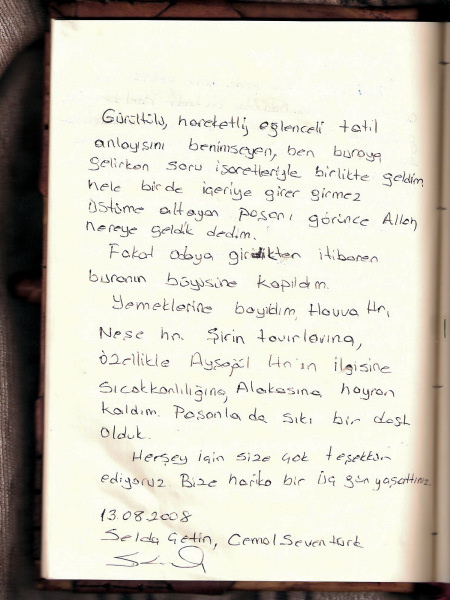 Gürültülü, hareketli, eğlenceli tatil
anlayışını benimseyen, ben buraya
gelirken soru işaretleriyle birlikte geldim,
hele bir de içeriye girer girmez
üstüme atlayan Paşanı görünce Allah
nereye geldik dedim.
Fakat odaya girdikten itibaren
buranın büyüsüne kapıldım.
Yemeklerine bayıldım, Havva Hn,
Neşe hn. Şirin tavırlarına,
özellikle Ayşegül Hn'ın ilgisine
sıcakkanlılığına, Alakasına hayran
kaldım. Paşanla da sıkı bir dost
olduk.
Herşey için size çok teşekkür
ediyoruz. Bize harika bir üç gün yaşattınız.
13.08.2008
Selda Çetin, Cemal Seventürk